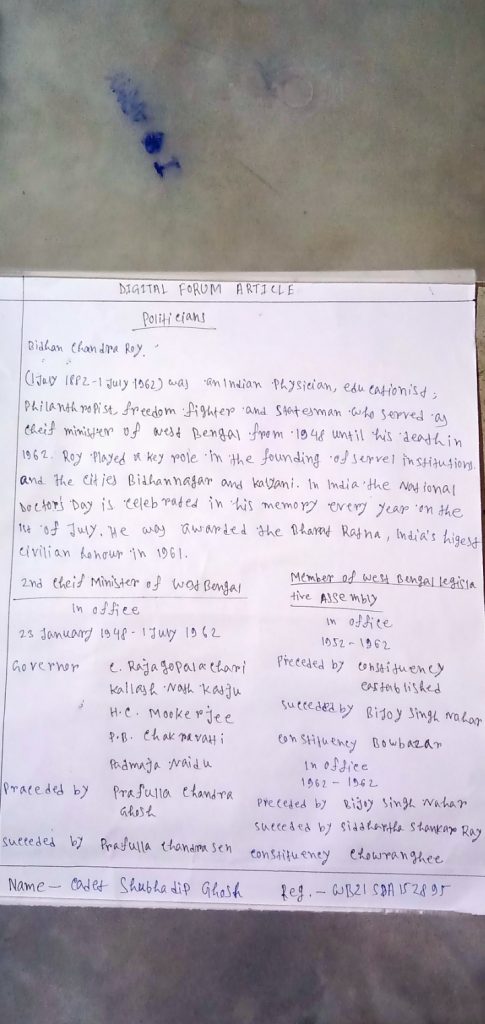 DIGITAL FORUM ARTICLE
Politicians
Bidhan Chandra Roy.
(1 July 1882 - 1 July 1962) was an Indian Physician, educationist,
Philanthropist, freedom fighter and Statesman who served as
cheif minister of west Bengal from 1948 until his death in
1962. Roy Played a key role in the founding of servel institutions
and the cities Bidhannagar and kalyani. In India the National
Doctor's Day is celebrated in his memory every year on the
1st of July. He was awarded the Bharat Ratna, India's higest
civilian honour in 1961.
2nd cheif Minister of West Bengal
In office
23 January 1948 - 1 July 1962
Governor C. Rajagopalachari
Kailash Nath Kadju
H.C. Mookerjee
P.B. Chakravatti
Padmaja Naidu
Praceded by Prafulla Chandra
Ghosh
Succeded by Prafulla Chandra Sen
Member of west Bengal legisla
tive Assembly
in office
1952 - 1962
Preceded by constituency
established
succeeded by Bijoy Singh Nahar
constituency Bowbazar
In office
1962 - 1962
Preceded by Bijoy Singh Nahar
succeded by Siddhartha Shankar Ray
constituency Chowranghee
Name - Cadet Shubhadip Ghosh Reg. - WB21SDA152895